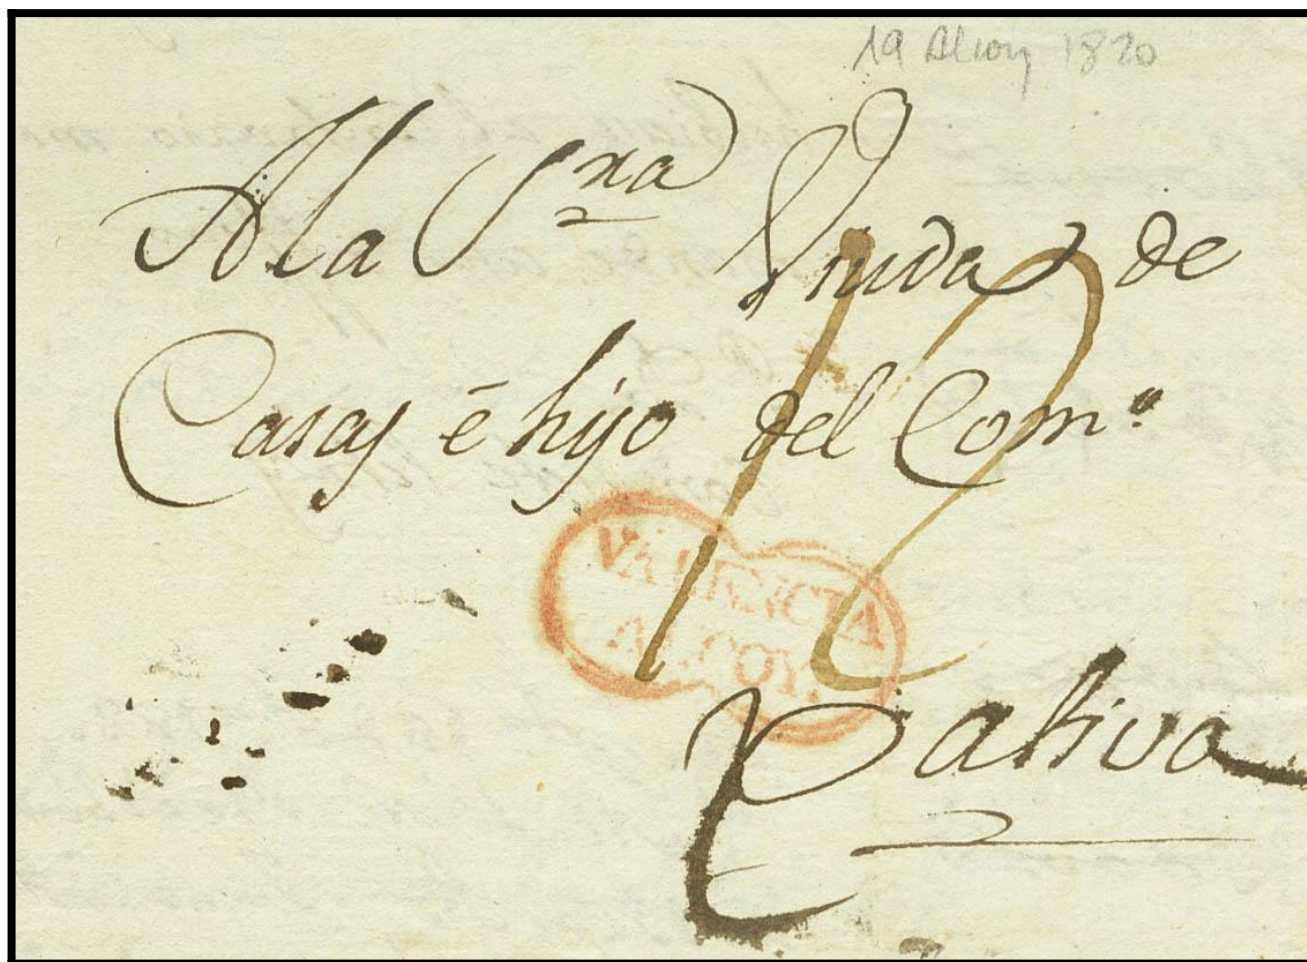 19 Alcoy 1820
A la Sra Viuda de
Casas é hijo del Como
VALENCIA
ALCOY.
12
Xativa